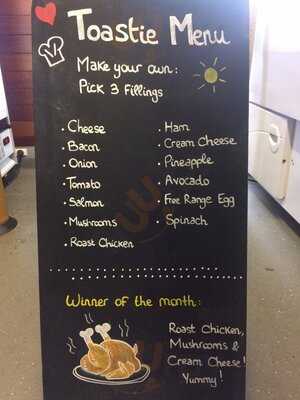 Toastie Menu
Make your own :
Pick 3 Fillings
· Cheese
· Bacon
· Onion
· Tomato
· Salmon
· Mushrooms
· Roast Chicken
· Ham
· Cream Cheese
· Pineapple
· Avocado
· Free Range Egg
· Spinach
Winner of the month:
Roast Chicken,
Mushrooms &
Cream Cheese!
Yummy!